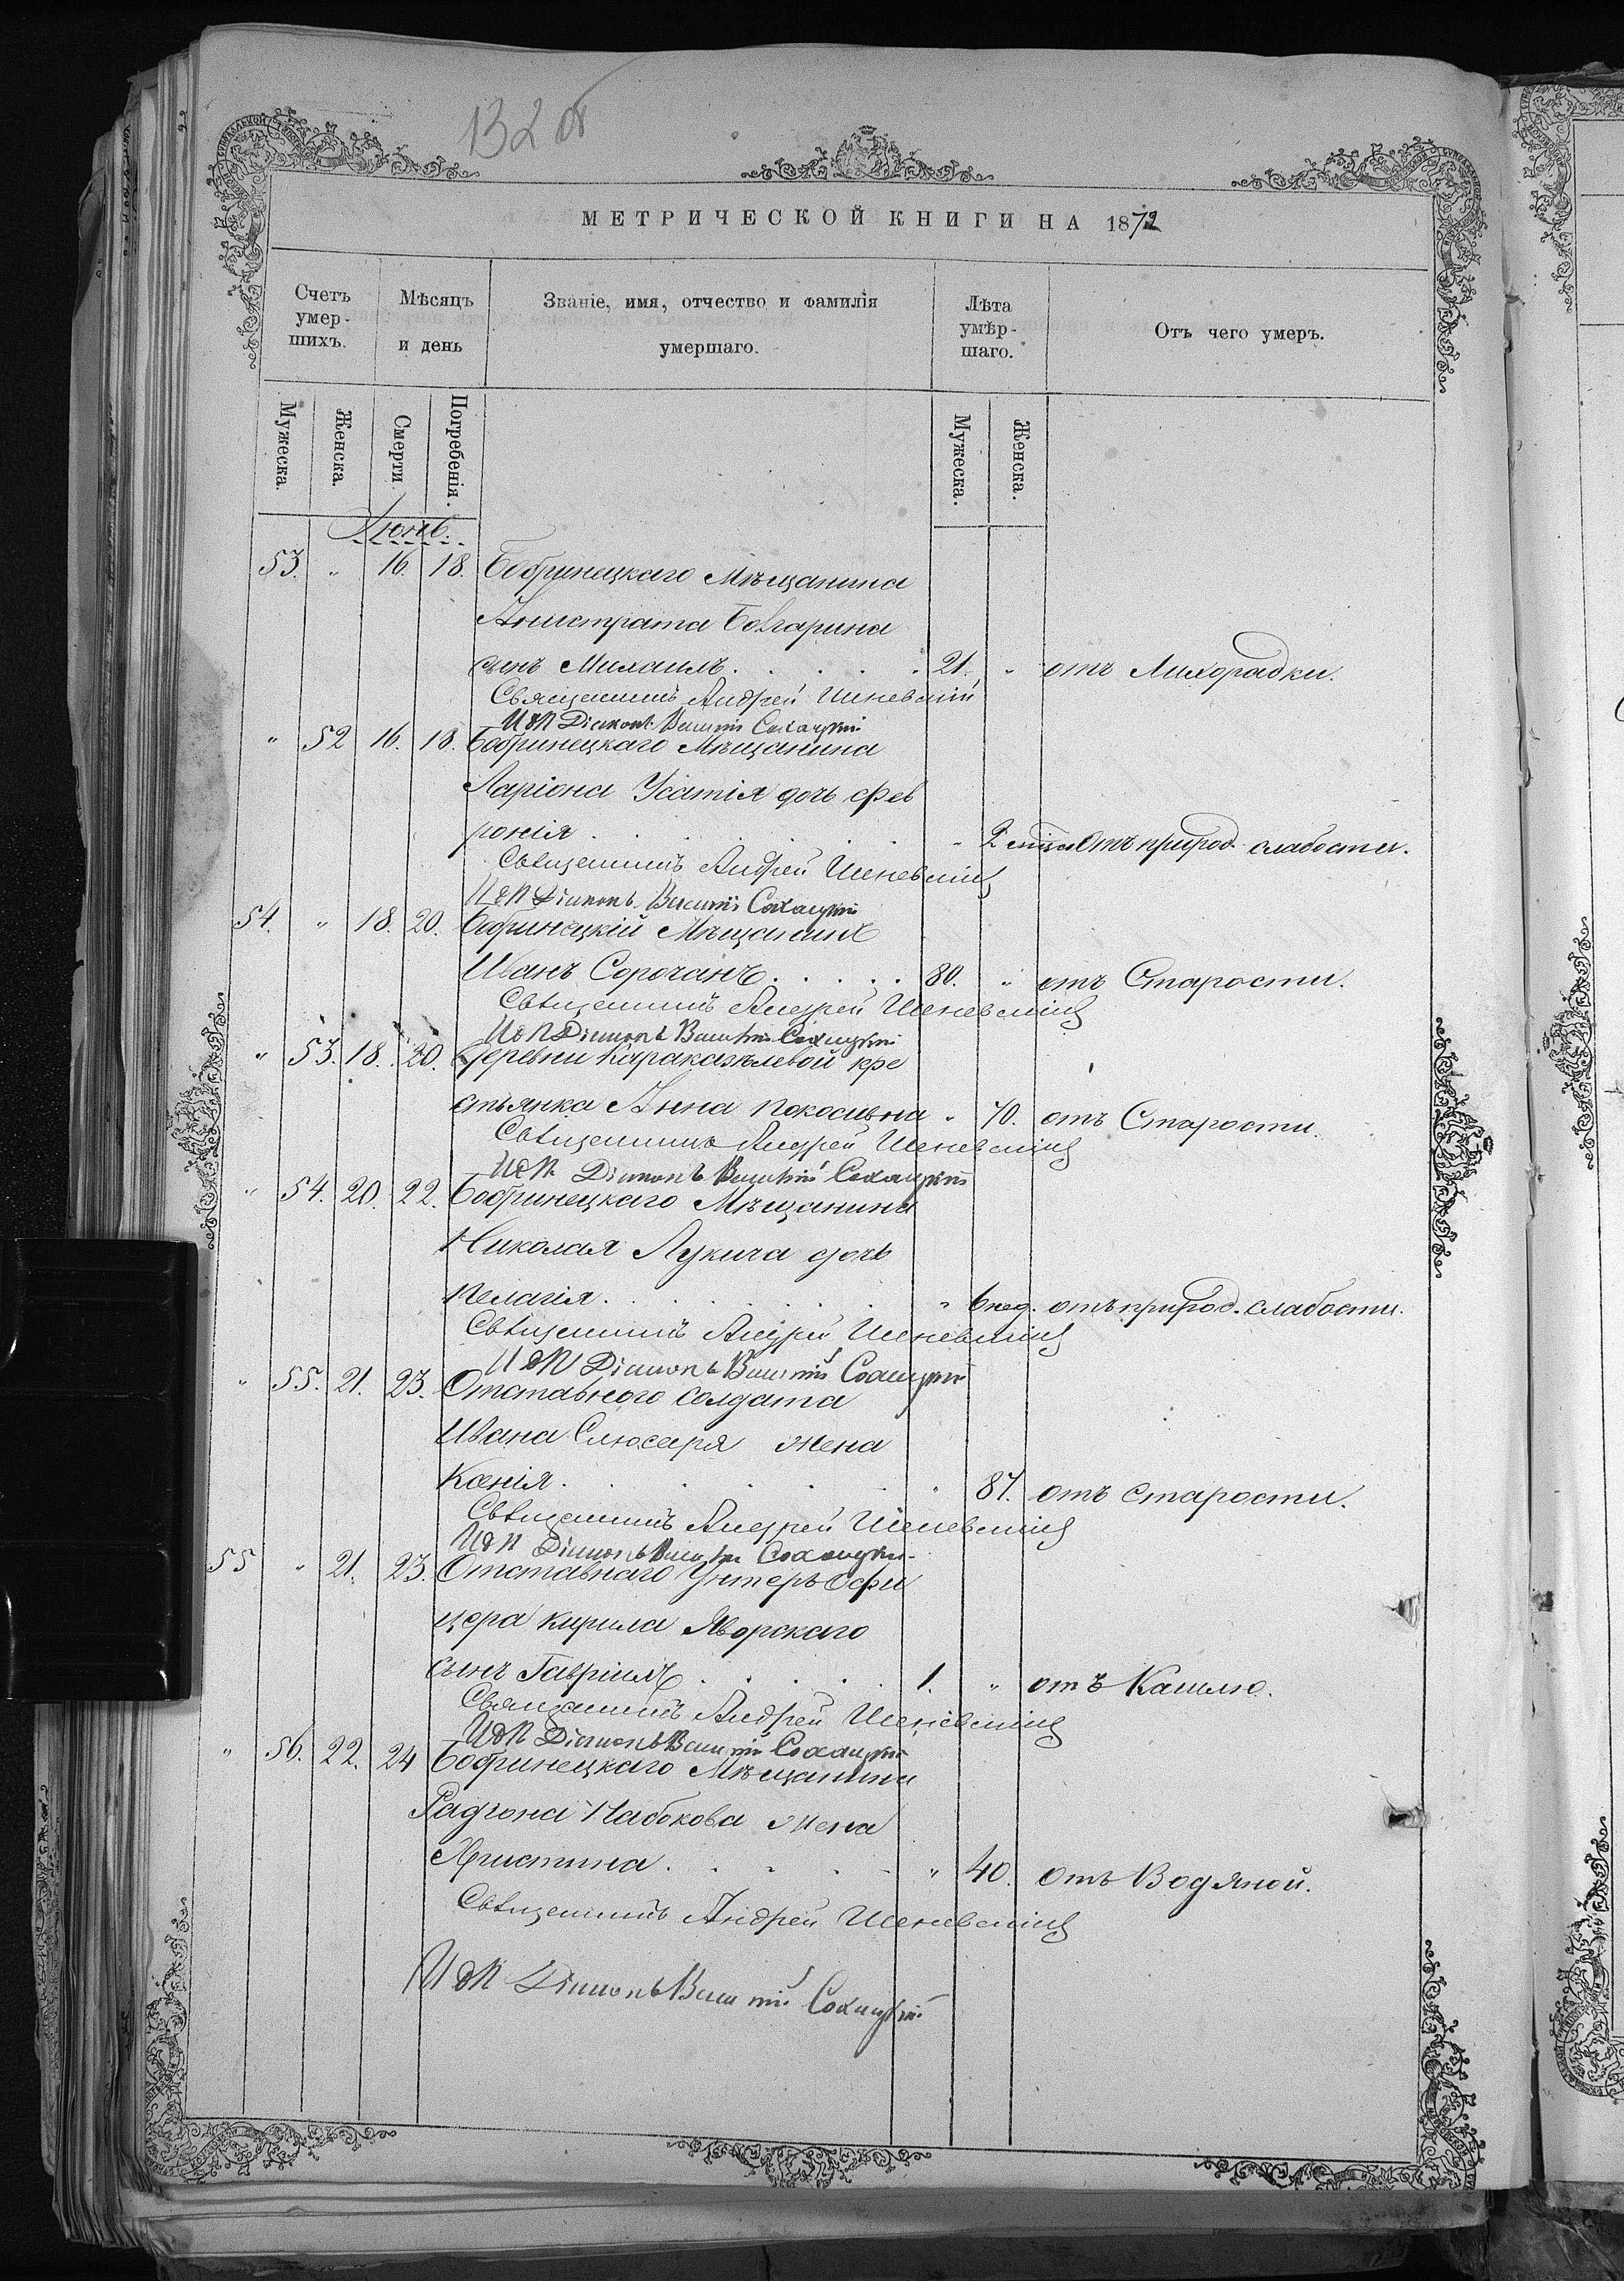 132 об
МЕТРИЧЕСКОЙ КНИГИ НА 1872
Счетъ умер-шихъ.
Мѣсяцъ и день
Званіе, имя, отчество и фамилія умершаго.
Лѣта умѣр-шаго.
Отъ чего умеръ.
Мужеска. Женска. Смерти. Погребенія. Мужеска. Женска.
Іюнь.
53. " 16. 18. Бобринецкаго Мѣщанина
Анистрата Болгарина
сынъ Михаилъ. 21. " отъ Лихорадки.
Священникъ Андрей
И д П Діаконъ Сохацкій
" 52 16. 18. Бобринецкаго Мѣщанина
Ларіона Усатія дочь Фев
ронія " 2 отъ природ. слабости.
Священникъ Андрей
И д П Діаконъ Сохацкій
54. " 18. 20. Бобринецкій Мѣщанинъ
Иванъ Сорочанъ 80. " отъ Старости.
Священникъ Андрей
И д П Діаконъ Сохацкій
" 53. 18. 20. Деревни кре
стьянка Анна " 70. отъ Старости.
Священникъ Андрей
И д П Діаконъ Сохацкій
" 54. 20. 22. Бобринецкаго Мѣщанина
Николая Лукича дочь
Пелагія. " 6 нед. отъ природ. слабости.
Священникъ Андрей
И д П Діаконъ Сохацкій
" 55. 21. 23. Отставного солдата
Ивана Слюсаря жена
Ксенія. " 87. отъ старости.
Священникъ Андрей
И д П Діаконъ Сохацкій
55 " 21. 23. Отставнаго Унтеръ Офи
цера Кирила Яворскаго
сынъ Гавріилъ 1. " отъ Кашлю.
Священникъ Андрей
И д П Діаконъ Сохацкій
" 56. 22. 24 Бобринецкаго Мѣщанина
Радіона Набокова жена
Христина. " 40. отъ Водяной.
Священникъ Андрей
И д П Діаконъ Сохацкій